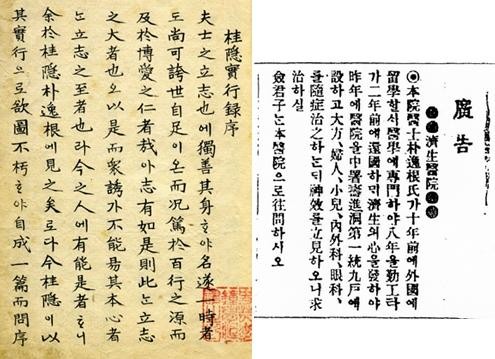 桂隱實行録序
夫士之立志也에獨善其身ᄒᆞ야名遂一時者
도尙可誇世自足이온而况篤於百行之源而
及於博愛之仁者哉아志有如是則此ᄂᆞᆫ立志
之大者也오以是而衆誘가不能易其本心者
ᄂᆞᆫ立志之至者也라今之人에有能是者ᄒᆞ니
余於桂隱朴逸根에見之矣로다今桂隱이以
其實行으로欲圖不朽ᄒᆞ야自成一篇而問序
廣告
濟生醫院
◉本院醫士朴逸根氏가十年前에外國에
留學할새醫學에專門하야八年을勤工타
가二年前에還國하며濟生의心을發하야
昨年에醫院을中署壽進洞第一統九戶에
設하고大方、婦人、小兒、內外科、眼科、
을隨症治之하는듸神效를立見하오니求
治하실
僉君子는本醫院으로往問하시오